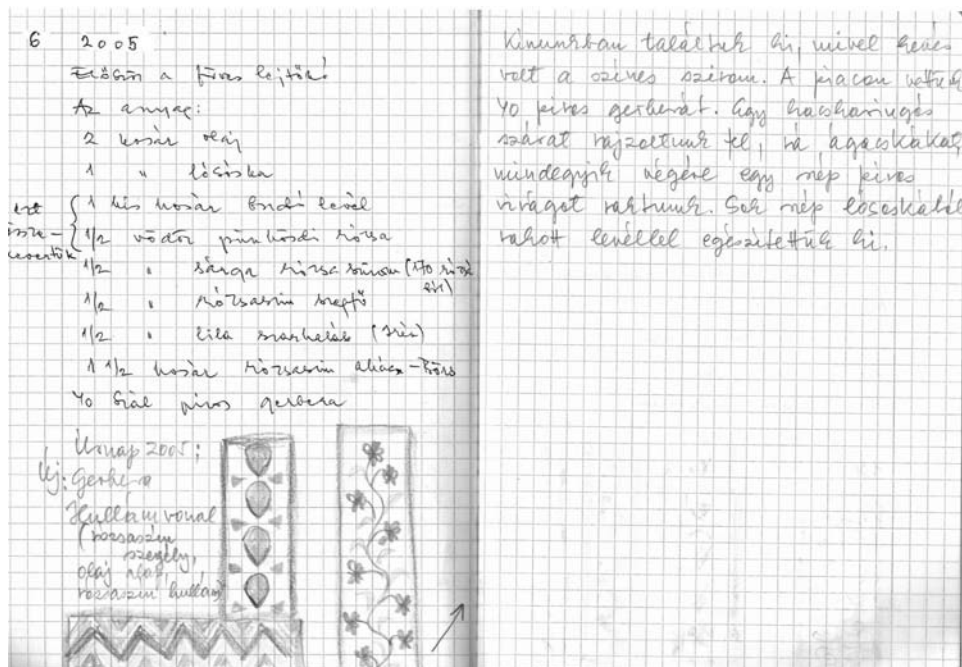 6 2005
a füves lejtők!
Az anyag:
2 kosár olaj
1 " lósóska
ezt össze-
kevertük
1 kis kosár levél
1/2 vödör pünkösdi rózsa
1/2 " sárga rózsa szirom (170
1/2 " rózsaszín szegfű
1/2 " lila szarkaláb
1 1/2 kosár rózsaszín akácz
40 szál piros gerbera
Úrnap 2005:
Új: Gerbera
Hullámvonal
(rózsaszín
szegély,
olaj alap,
rózsaszín hullám)
Kínunkban találtuk ki, mivel kevés
volt a színes szirom. A piacon vettünk
40 piros gerberát. Egy kacskaringós
szárat rajzoltunk fel, rá ágacskákat,
mindegyik végére egy szép piros
virágot raktunk. Sok szép lósóskából
rakott levéllel egészítettük ki.